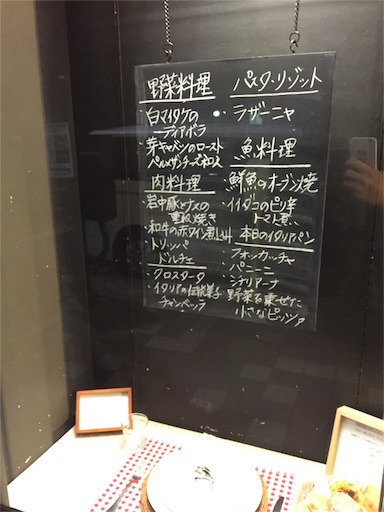 野菜料理
・白マイタケの
ディアボラ
・芽キャベツのロースト
パルメザンチーズ和え
肉料理
・岩中豚とナスの
重ね焼き
・和牛の赤ワイン煮込み
・トリッパ
ドルチェ
・クロスタータ
・イタリアの伝統菓子
チャンベッラ
パスタ・リゾット
・ラザーニャ
魚料理
・鮮魚のオーブン焼
・イイダコのピリ辛
トマト煮
本日のイタリアパン
・フォカッチャ
・パニーニ
・シチリアーナ
・野菜を乗せた
小さなピッツァ